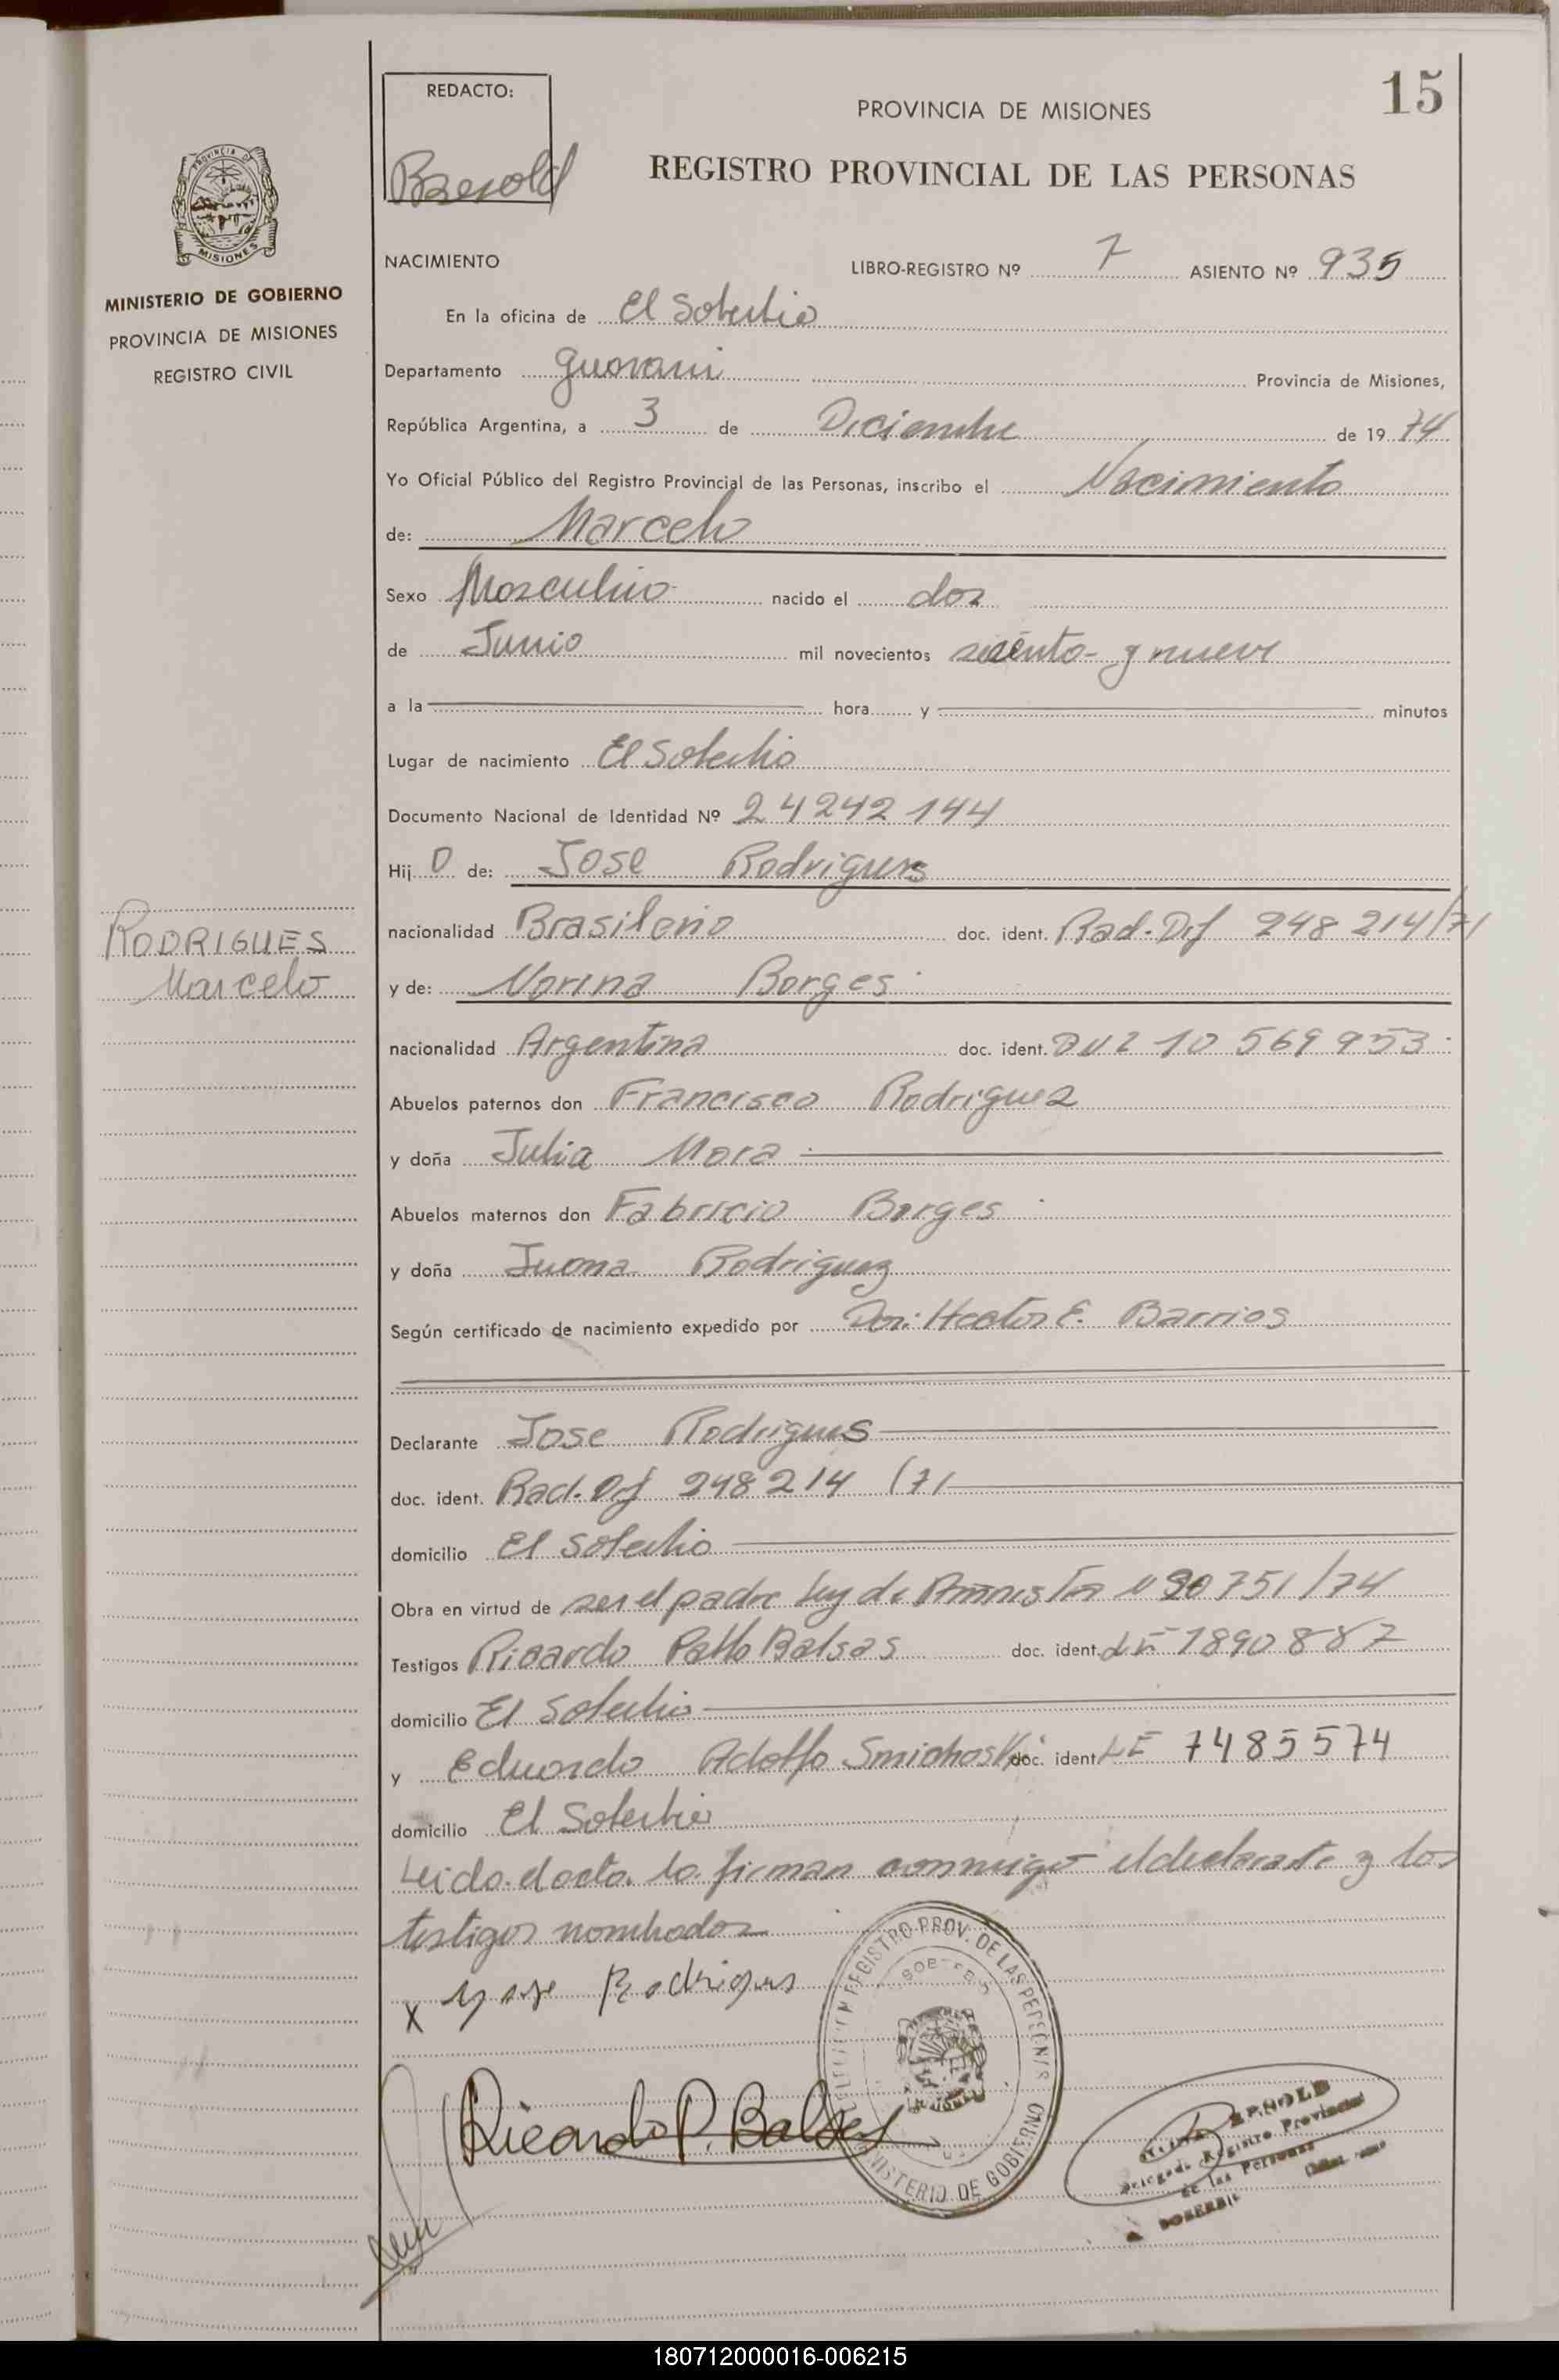 15
REDACTO:
PROVINCIA DE MISIONES
REGISTRO PROVINCIAL DE LAS PERSONAS
PROVINCIA DE
MISIONES
MINISTERIO DE GOBIERNO
PROVINCIA DE MISIONES
REGISTRO CIVIL
NACIMIENTO LIBRO-REGISTRO Nº 7 ASIENTO Nº 935
En la oficina de El Soberbio
Departamento Guarani Provincia de Misiones,
República Argentina, a 3 de Diciembre de 1974
Yo Oficial Público del Registro Provincial de las Personas, inscribo el Nacimiento
de: Marcelo
Sexo Masculino nacido el dos
de Junio mil novecientos sesenta y nueve
a la hora y minutos
Lugar de nacimiento El Soberbio
Documento Nacional de Identidad Nº 24242144
Hijo de: Jose Rodrigues
nacionalidad Brasileño doc. ident. Rad. Dif 248 214/71
RODRIGUES
Marcelo
y de: Norina Borges
nacionalidad Argentina doc. ident. DUI 10 569 953
Abuelos paternos don Francisco Rodriguez
y doña Julia Mora
Abuelos maternos don Fabricio Borges
y doña Juana Rodriguez
Según certificado de nacimiento expedido por Don: Hector E. Barrios
Declarante Jose Rodrigues
doc. ident. Rad. Dif 248214/71
domicilio El Soberbio
Obra en virtud de ser el padre Ley de Amnistia Nº 20751/74
Testigos Ricardo Pablo Balsas doc. ident. LE 1890887
domicilio El Soberbio
y Eduardo Adolfo doc. ident. LE 7485574
domicilio El Soberbio
Leida el acta la firman conmigo el declarante y los
testigos nombrados
X Rodrigues
REGISTRO PROV. DE LAS PERSONAS
MINISTERIO DE GOBIERNO
Ricardo P. Balsas
Registro Provincial
de las Personas
180712000016-006215